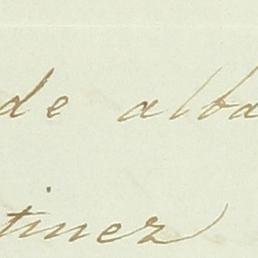 de alba
tinez